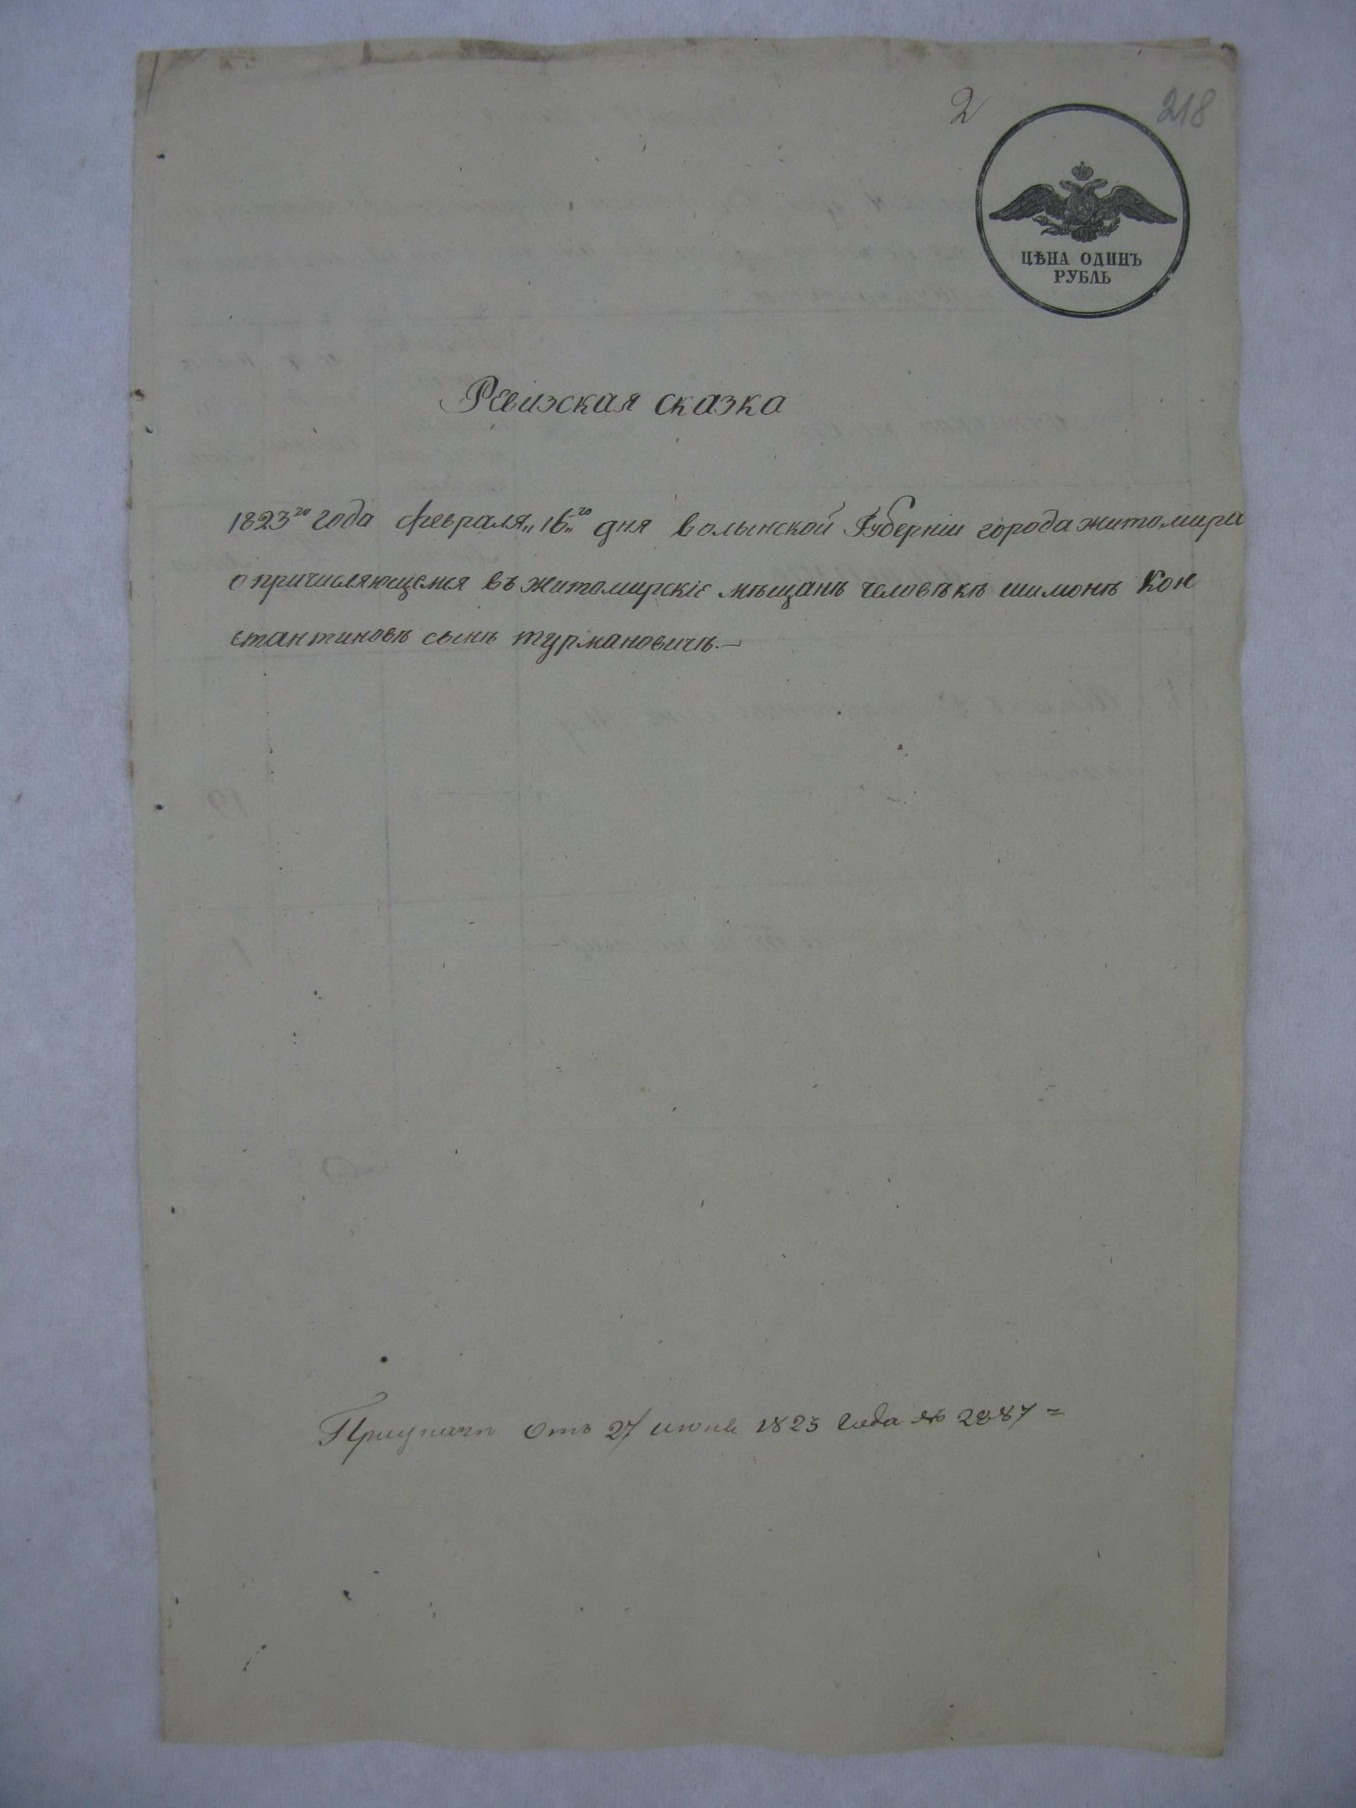 2
218
ЦѢНА ОДИНЪ
РУБЛЬ
Ревизская сказка
1823го года февраля „16„го дня волынской Губерніи города житомира
о причисляющемся въ житомирскіе мѣщанъ человѣкъ шимонъ Кон
стантиновъ сынъ турмановичъ.—
отъ 27 июня 1823 года № 2287 =